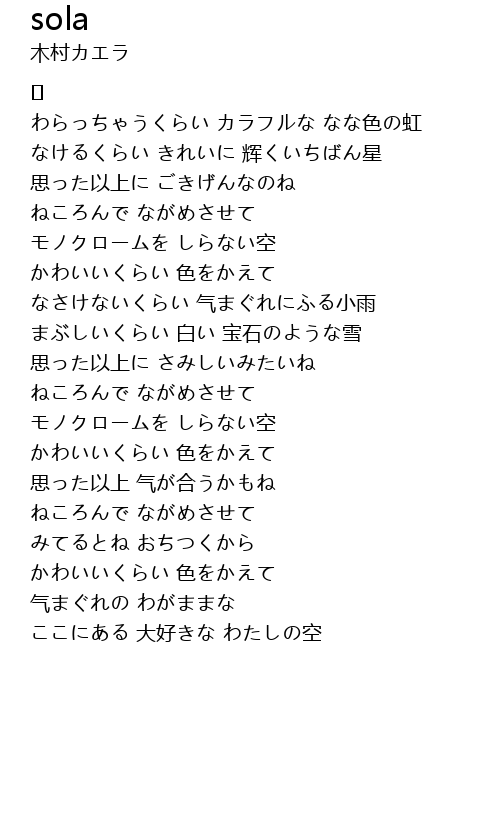 sola
木村カエラ
わらっちゃうくらい カラフルな なな色の虹
なけるくらい きれいに 輝くいちばん星
思った以上に ごきげんなのね
ねころんで ながめさせて
モノクロームを しらない空
かわいいくらい 色をかえて
なさけないくらい 气まぐれにふる小雨
まぶしいくらい 白い 宝石のような雪
思った以上に さみしいみたいね
ねころんで ながめさせて
モノクロームを しらない空
かわいいくらい 色をかえて
思った以上 气が合うかもね
ねころんで ながめさせて
みてるとね おちつくから
かわいいくらい 色をかえて
气まぐれの わがままな
ここにある 大好きな わたしの空